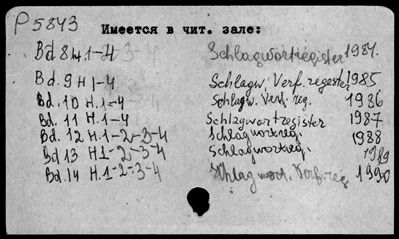 P 5843
Имеется в чит. зале:
Bd 8 H.1-4 Schlagwortregister 1984.
Bd. 9 H 1-4 Schlagw. Verf. regester 1985
Bd. 10 H.1-4 Schlagw. Verf. reg. 1986
Bd. 11 H.1-4 Schlagwortregister 1987
Bd. 12 H.1-2-3-4 Schlagwortreg. 1988
Bd 13 H1-2-3-4 Schlagwortreg. 1989
Bd. 14 H.1-2-3-4 Schlagwort. Verf-reg 1990